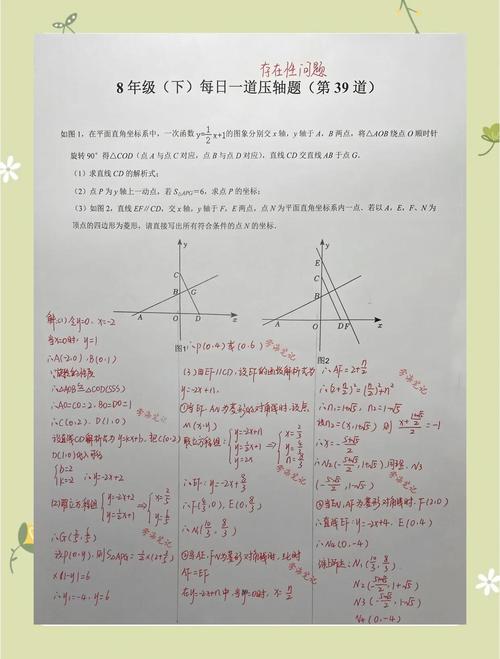 存在性问题
8年级（下）每日一道压轴题（第39道）
如图1，在平面直角坐标系中，一次函数y=1/2x+1的图象分别交x轴，y轴于A，B两点，将△AOB绕点O顺时针
旋转90°得△COD（点A与点C对应，点B与点D对应），直线CD交直线AB于点G．
（1）求直线CD的解析式；
（2）点P为y轴上一动点，若S△APG=6，求点P的坐标；
（3）如图2，直线EF∥CD，交x轴，y轴于F，E两点，点N为平面直角坐标系内一点．若以A，E，F，N为
顶点的四边形为菱形，请直接写出所有符合条件的点N的坐标．
y
C
B
G
A
O
D
x
图1
y
E
C
B
A
O
D
F
x
图2
解:(1)令y=0, x=-2
当x=0时, y=1
∴A(-2,0), B(0,1)
∴△AOB≌△COD(SSS)
∴AO=CO=2, BO=DO=1
∴C(0,2), D(1,0)
设直线CD解析式为y=kx+b, 把C(0,2)
D(1,0)代入可得
∴y=-2x+2
(2)联立方程组 { y=-2x+2 y=1/2x+1 ⇒ { x=2/5 y=6/5
∴G(2/5, 6/5)
设P(0,y), 则S△APG=1/2×(2+2/5)
×|1-y|=6
∴y₁=-4, y=6
∴P(0,4)或(0,6)
(3)由EF∥CD, 设EF的函数解析式为
y=-2x+n,
①当EF, AN为菱形的对角线时, 设点
M(x,y)
联立方程组: { y=-2x+n y=1/2x+1 y=2x ⇒ { x=2/3 y=4/3 n=8/3
∴EF: y=-2x+8/3
∴F(4/3,0), E(0,8/3)
∴N₁(10/3, 8/3)
②当AE, FN为菱形对角线时, 此时
AF=EF
在y=-2x+n中, 当y=0时, x=n/2
∴AF=2+n/2
∴(2+n/2)²=(n/2)²+n²
∴n₁=1+√5, n₂=1-√5
∴N₂(-5+√5/2, 1+√5), 同理, N₃
(-5-√5/2, 1-√5)
③当EN, AF为菱形对角线时, F(2,0)
∴直线EF: y=-2x+4, E(0,4)
∴N₄(0,-4)
综上所述: N₁(10/3, 8/3)
N₂(-5+√5/2, 1+√5)
N₃(-5-√5/2, 1-√5)
N₄(0,-4)
学海笔记
学海笔记
学海笔记
学海笔记
学海笔记
学海笔记
学海笔记
学海笔记